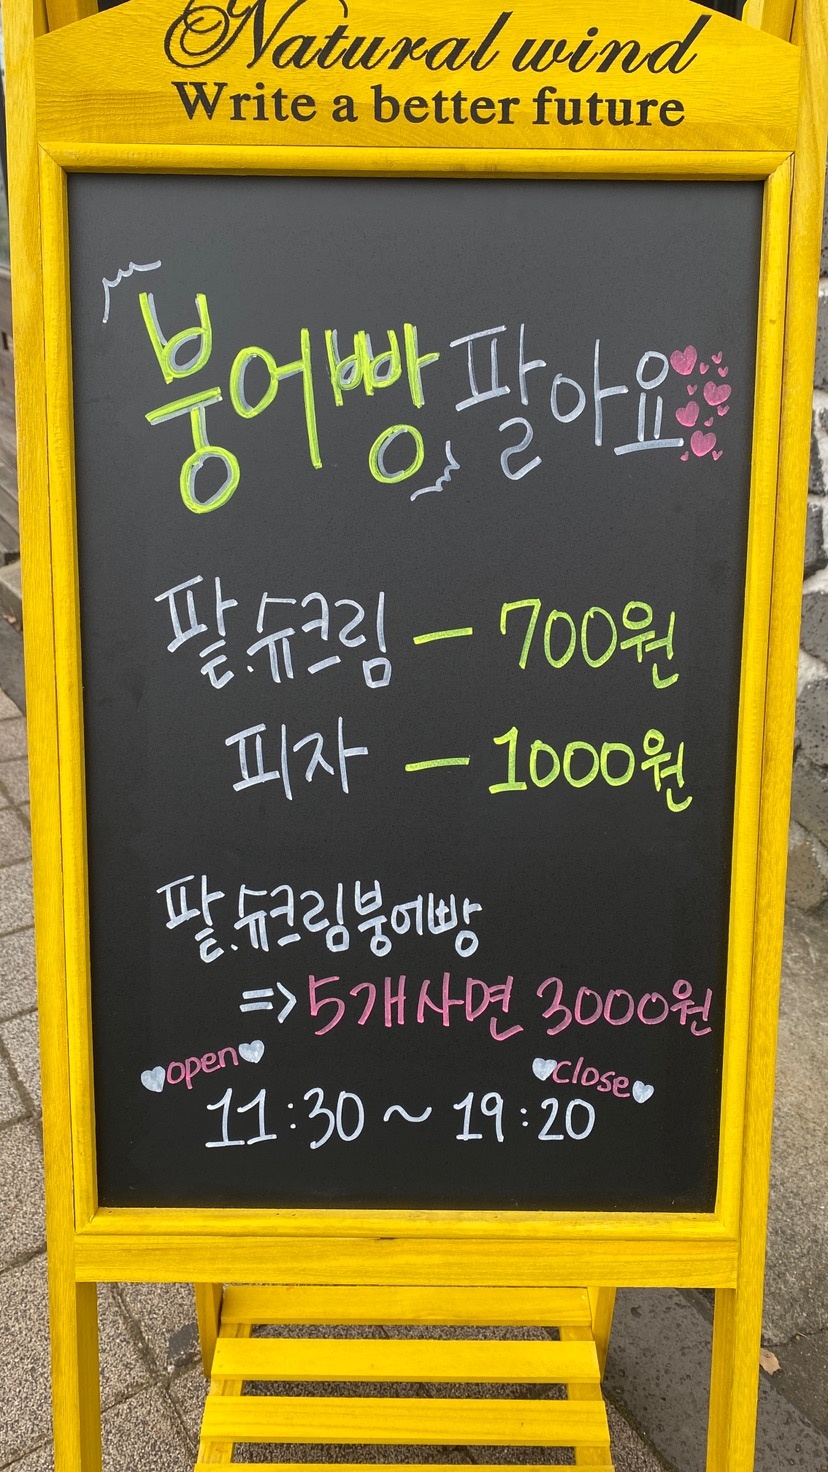 Natural wind
Write a better future
붕어빵 팔아요
팥.슈크림 - 700원
피자 - 1000원
팥.슈크림붕어빵
=> 5개사면 3000원
open close
11:30 ~ 19:20